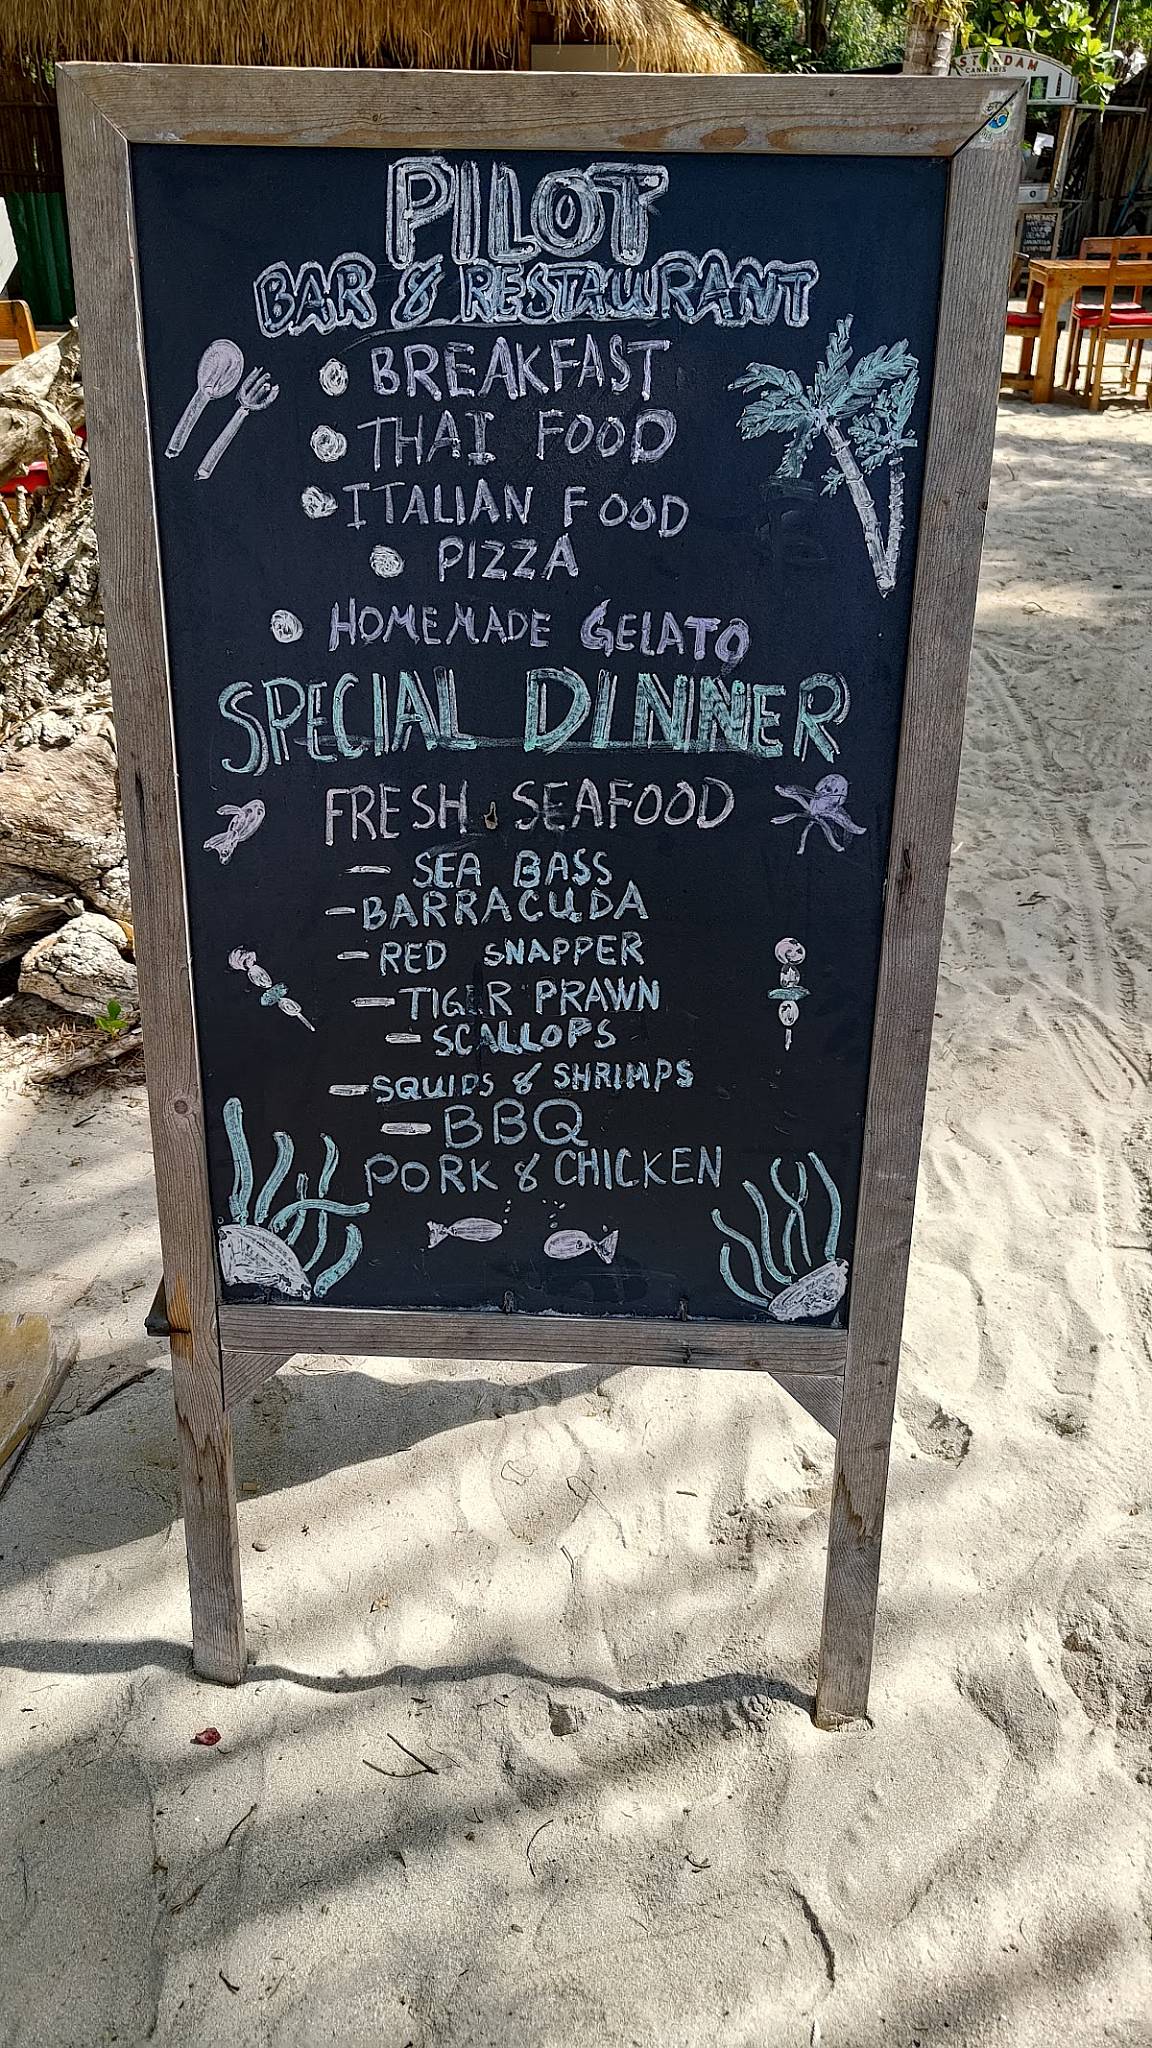 PILOT
BAR & RESTAURANT
BREAKFAST
THAI FOOD
ITALIAN FOOD
PIZZA
HOMEMADE GELATO
SPECIAL DINNER
FRESH SEAFOOD
- SEA BASS
- BARRACUDA
- RED SNAPPER
- TIGER PRAWN
- SCALLOPS
- SQUIDS & SHRIMPS
- BBQ
PORK & CHICKEN
STERDAM
CANNABIS
HOMEMADE